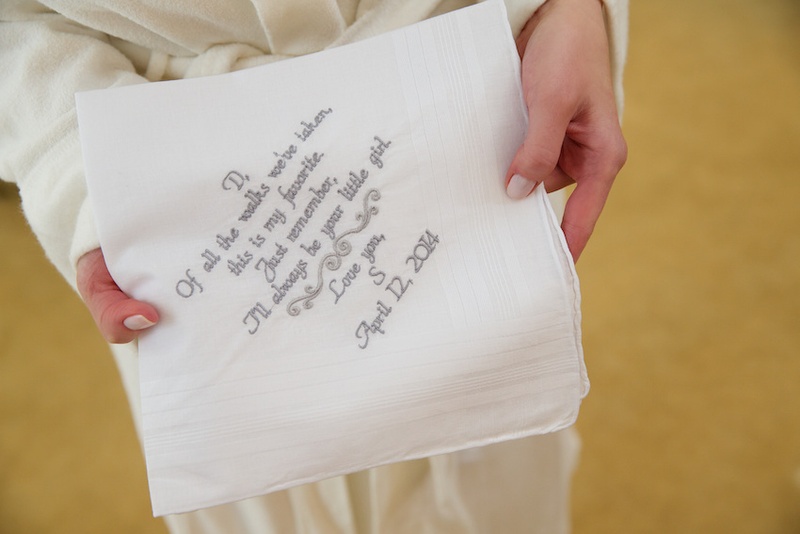 D,
Of all the walks we've taken,
this is my favorite.
Just remember,
I'll always be your little girl.
Love you,
S
April 12, 2014